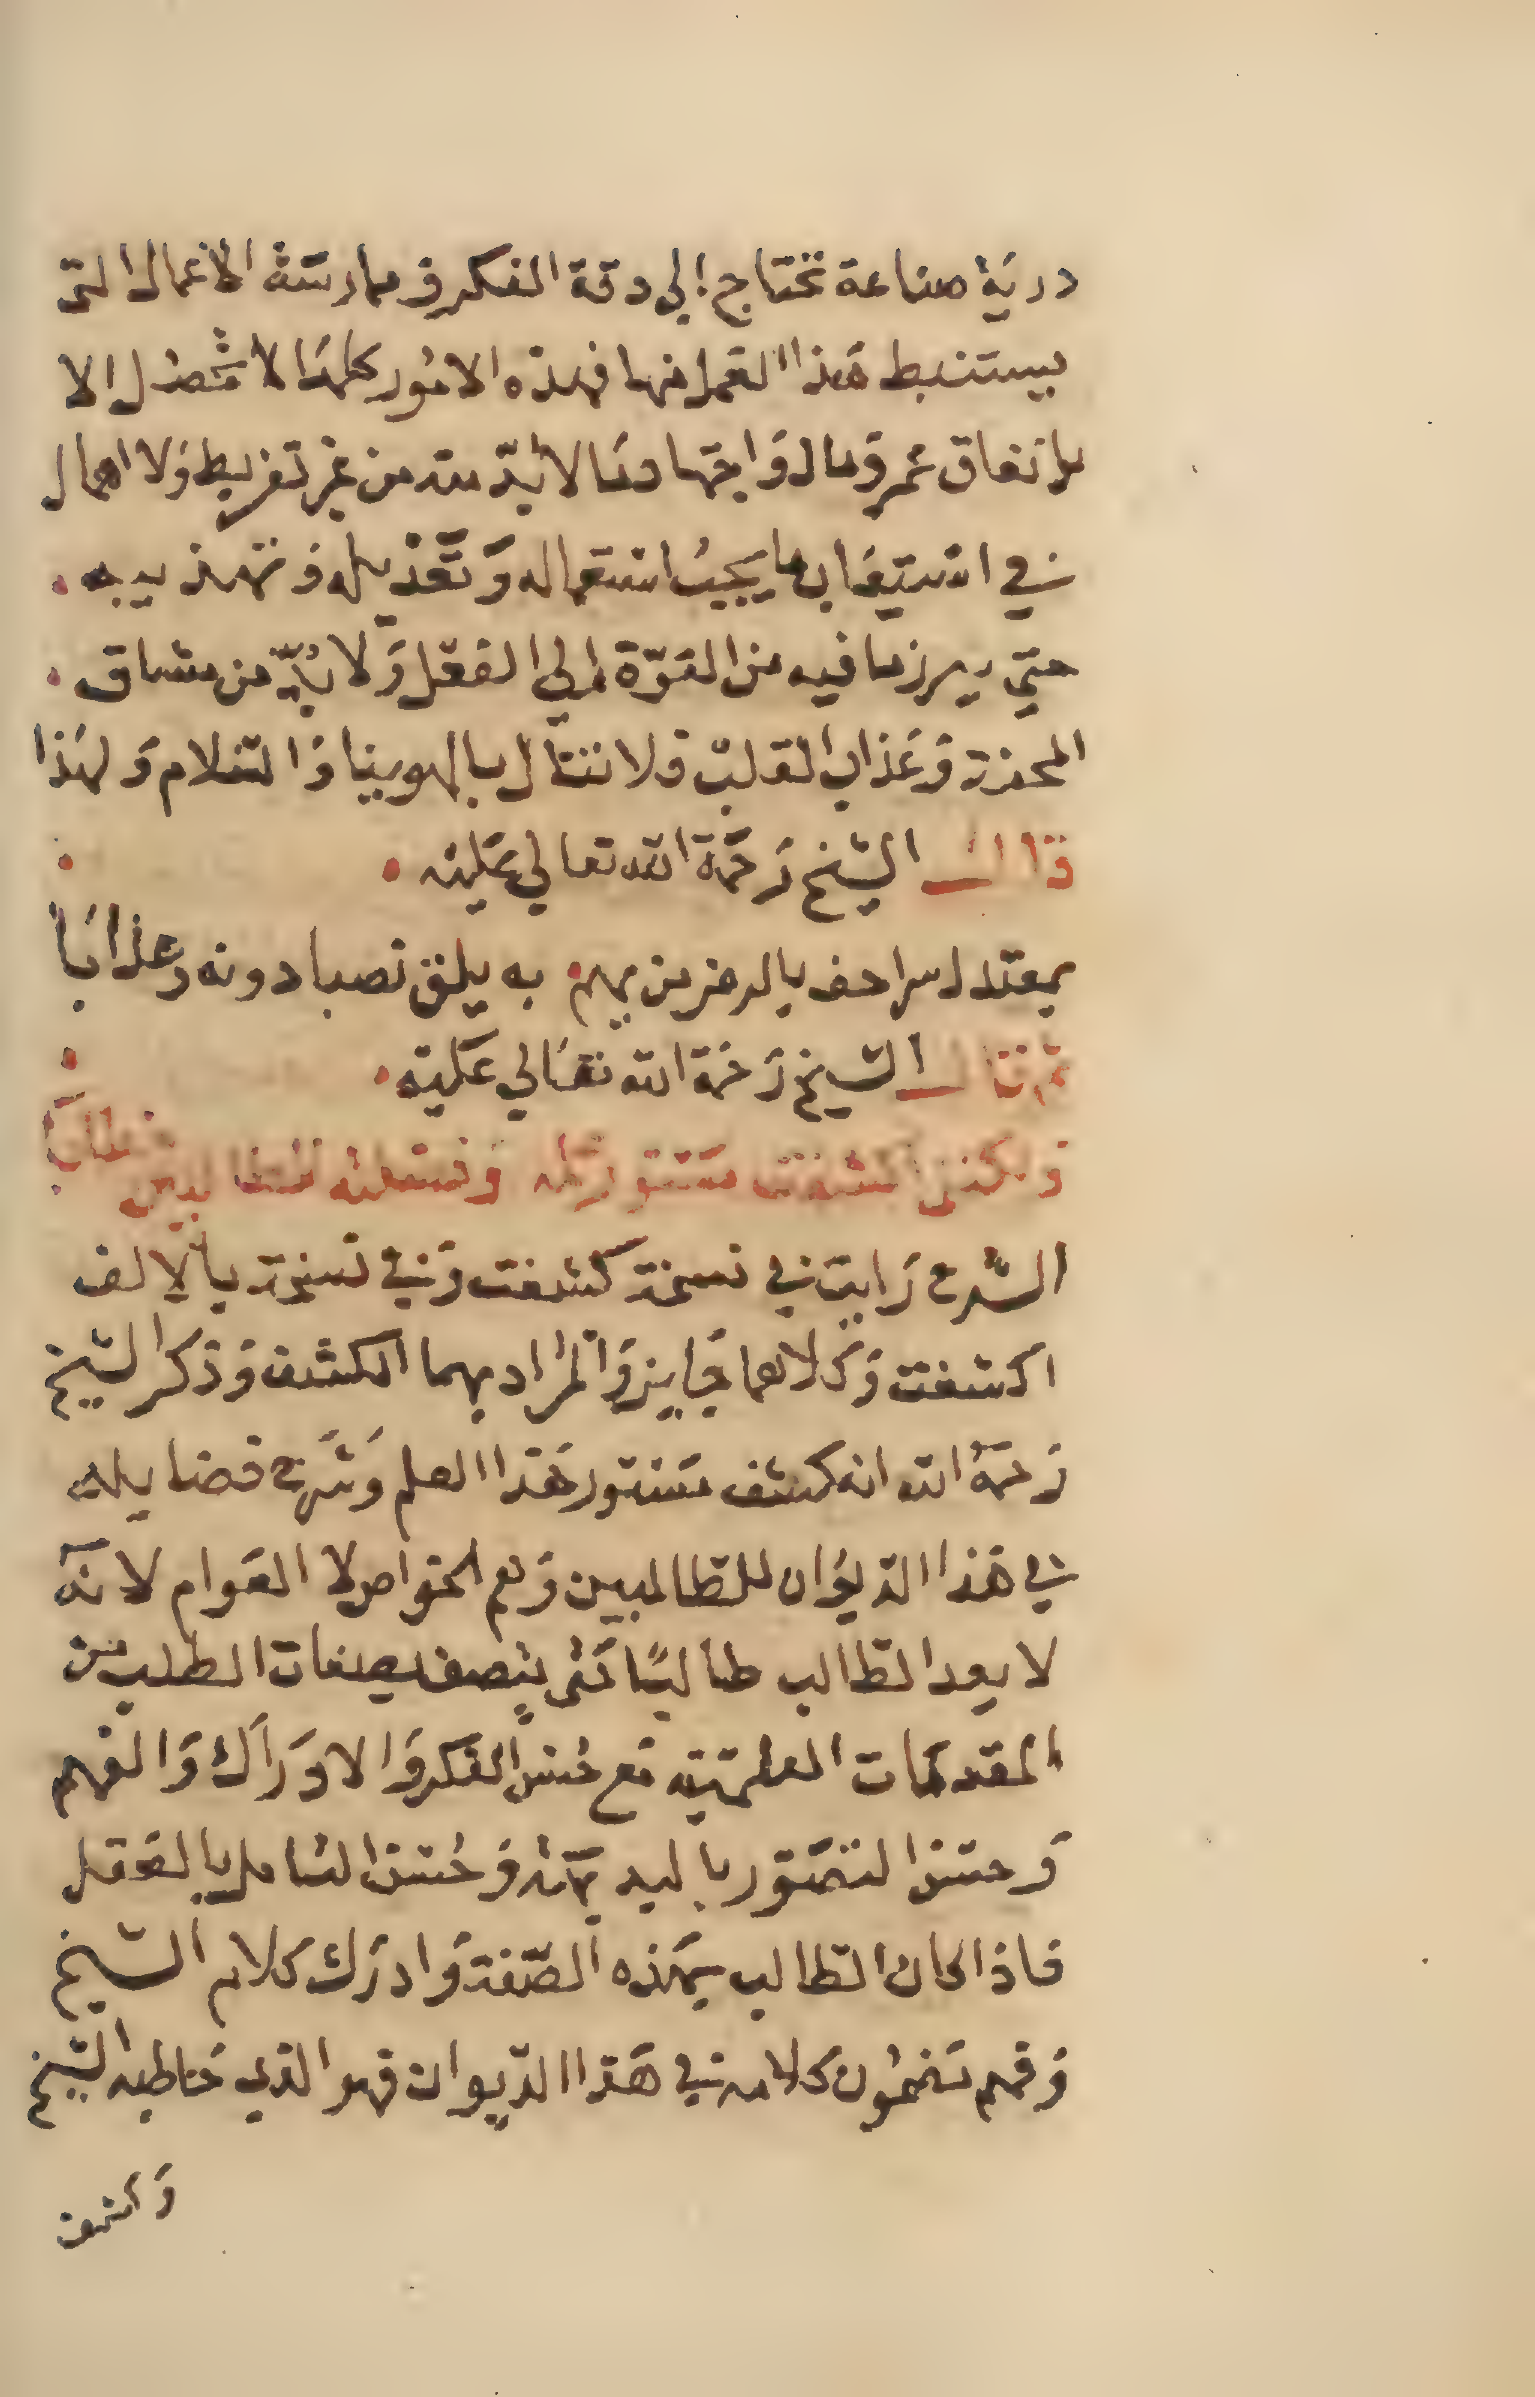 دربة صناعة تحتاج إلى دقة الفكر في ممارسة الاعمال التي
يستنبط هذا العمل منها فهذه الامور كلها لا تحصل الا
بانفاق عمر ومال واجتهاد لا بد منه من غير تفريط ولا اهمال
في استيعاب ما يجب استعماله وتعديله وتهذيبه
حتي يبرز ما فيه من القوة إلي الفعل ولا بد من مشاق
المحنة وعذاب القلب ولا تنال بالهوينا والسلام ولهذا
قال الشيخ رحمة الله تعالي عليه
به يلق نصبا دونه وعذابا
ثم قال الشيخ رحمة الله تعالي عليه
ولكنني كشفت مستور
الشرح رايت في نسخة كشفت وفي نسخة بالالف
اكشفت وكلاهما جايز والمراد بهما الكشف وذكر الشيخ
رحمة الله انه كشف مستور هذا العلم وشرح فضايله
في هذا الديوان للطالبين وهم الخواص لا العوام لانه
لا يعد الطالب طالبًا حتى يتصف بصفات الطلب من
المقدمات العلمية مع حسن الفكر والادراك والفهم
وحسن التصور بالبديهة وحسن التامل بالعقل
فاذا كان الطالب بهذه الصفة وادرك كلام الشيخ
وفهم مضمون كلامه في هذا الديوان فهو الذي خاطبه الشيخ
وكشف